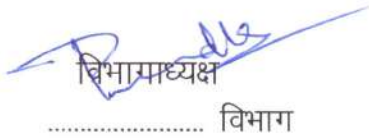 विभागाध्यक्ष
....................... विभाग